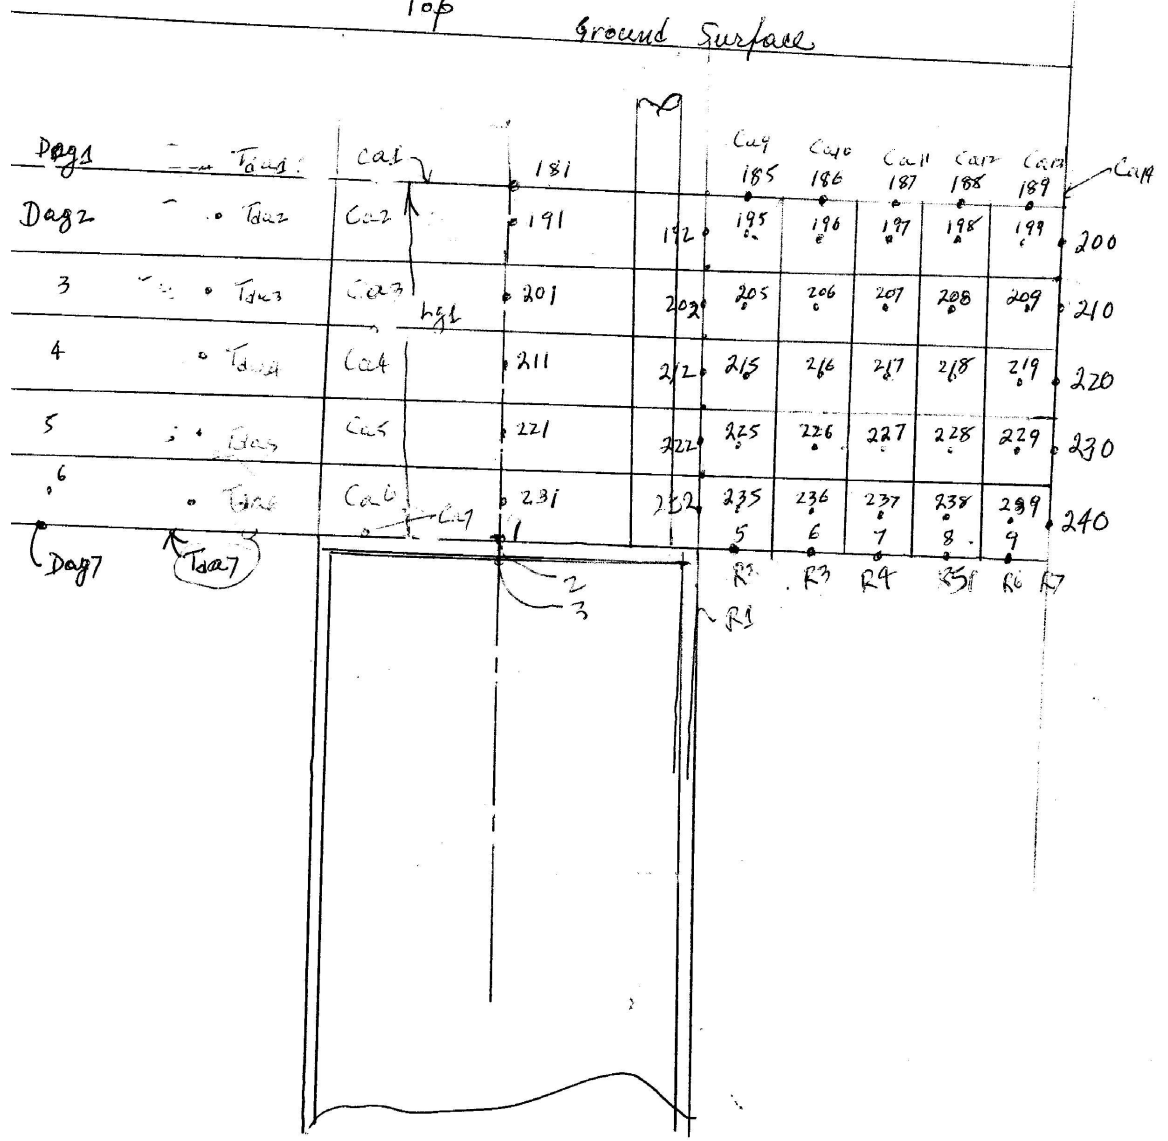 Top
Ground Surface
Dag1 Tda1 Ca1 181 Ca9 Ca10 Ca11 Ca12 Ca13 Ca14
185 186 187 188 189
Dag2 Tda2 Ca2 191 192 195 196 197 198 199 200
3 Tda3 Ca3 201 202 205 206 207 208 209 210
Lg1
4 Tda4 Ca4 211 212 215 216 217 218 219 220
5 Tda5 Ca5 221 222 225 226 227 228 229 230
6 Tda6 Ca6 231 232 235 236 237 238 239 240
Ca7 1 5 6 7 8 9
Dag7 Tda7 2 R2 R3 R4 R5 R6 R7
3 R1